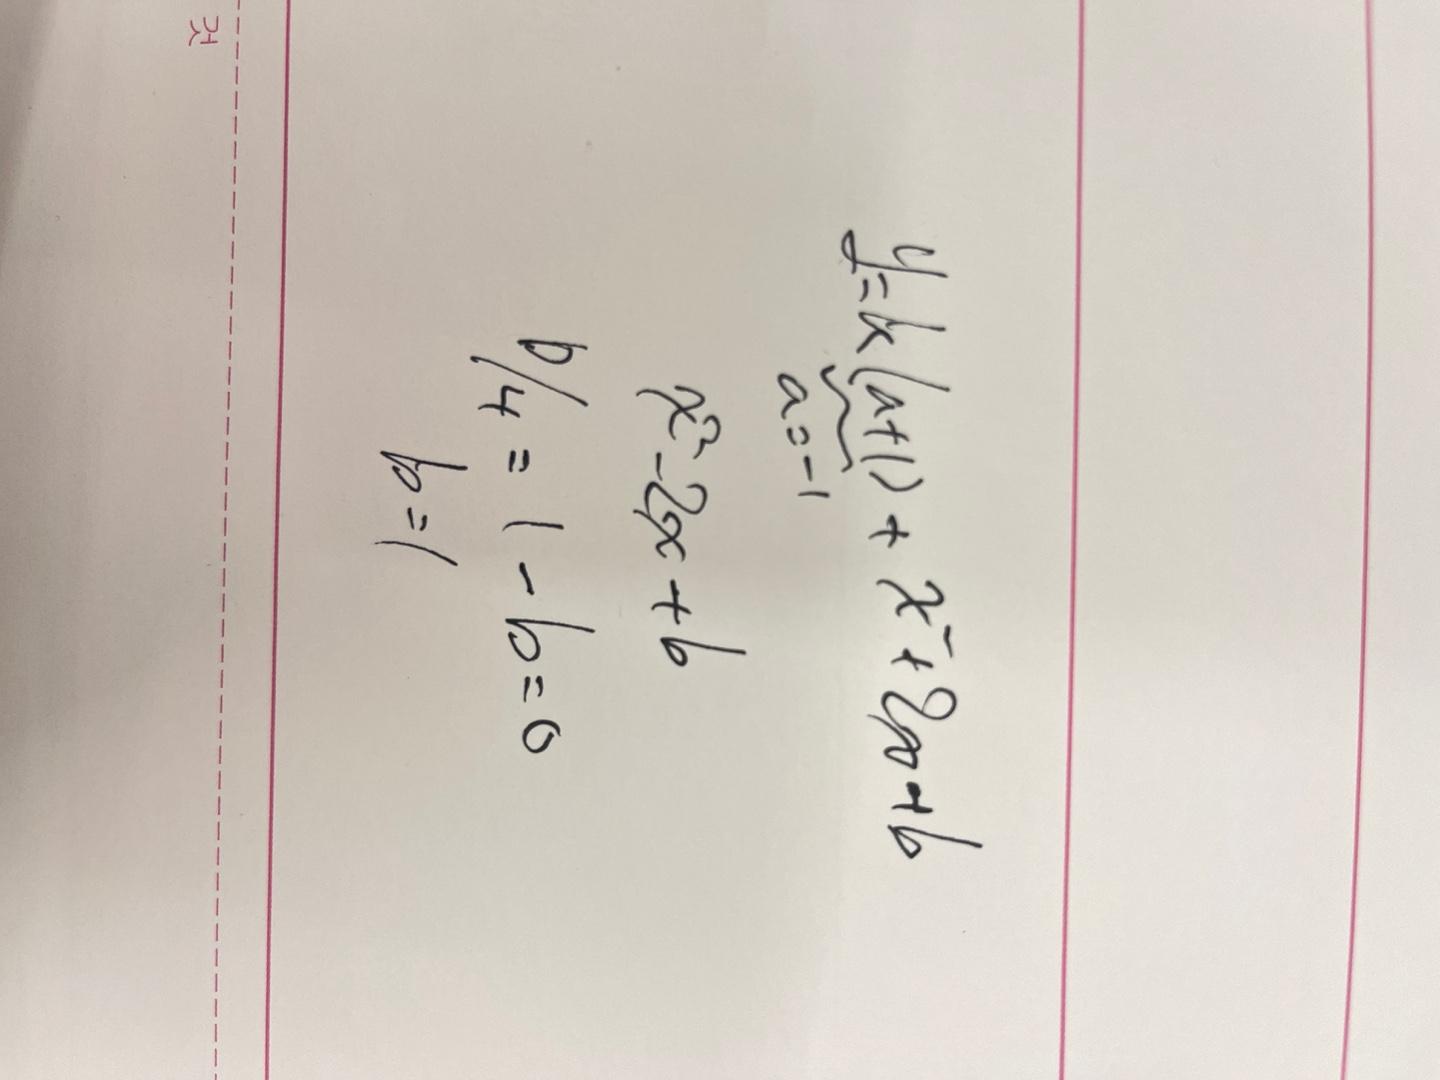 것
y=k(a+1)+x²+2x+b
a=-1
x²-2x+b
D/4=1-b=0
b=1